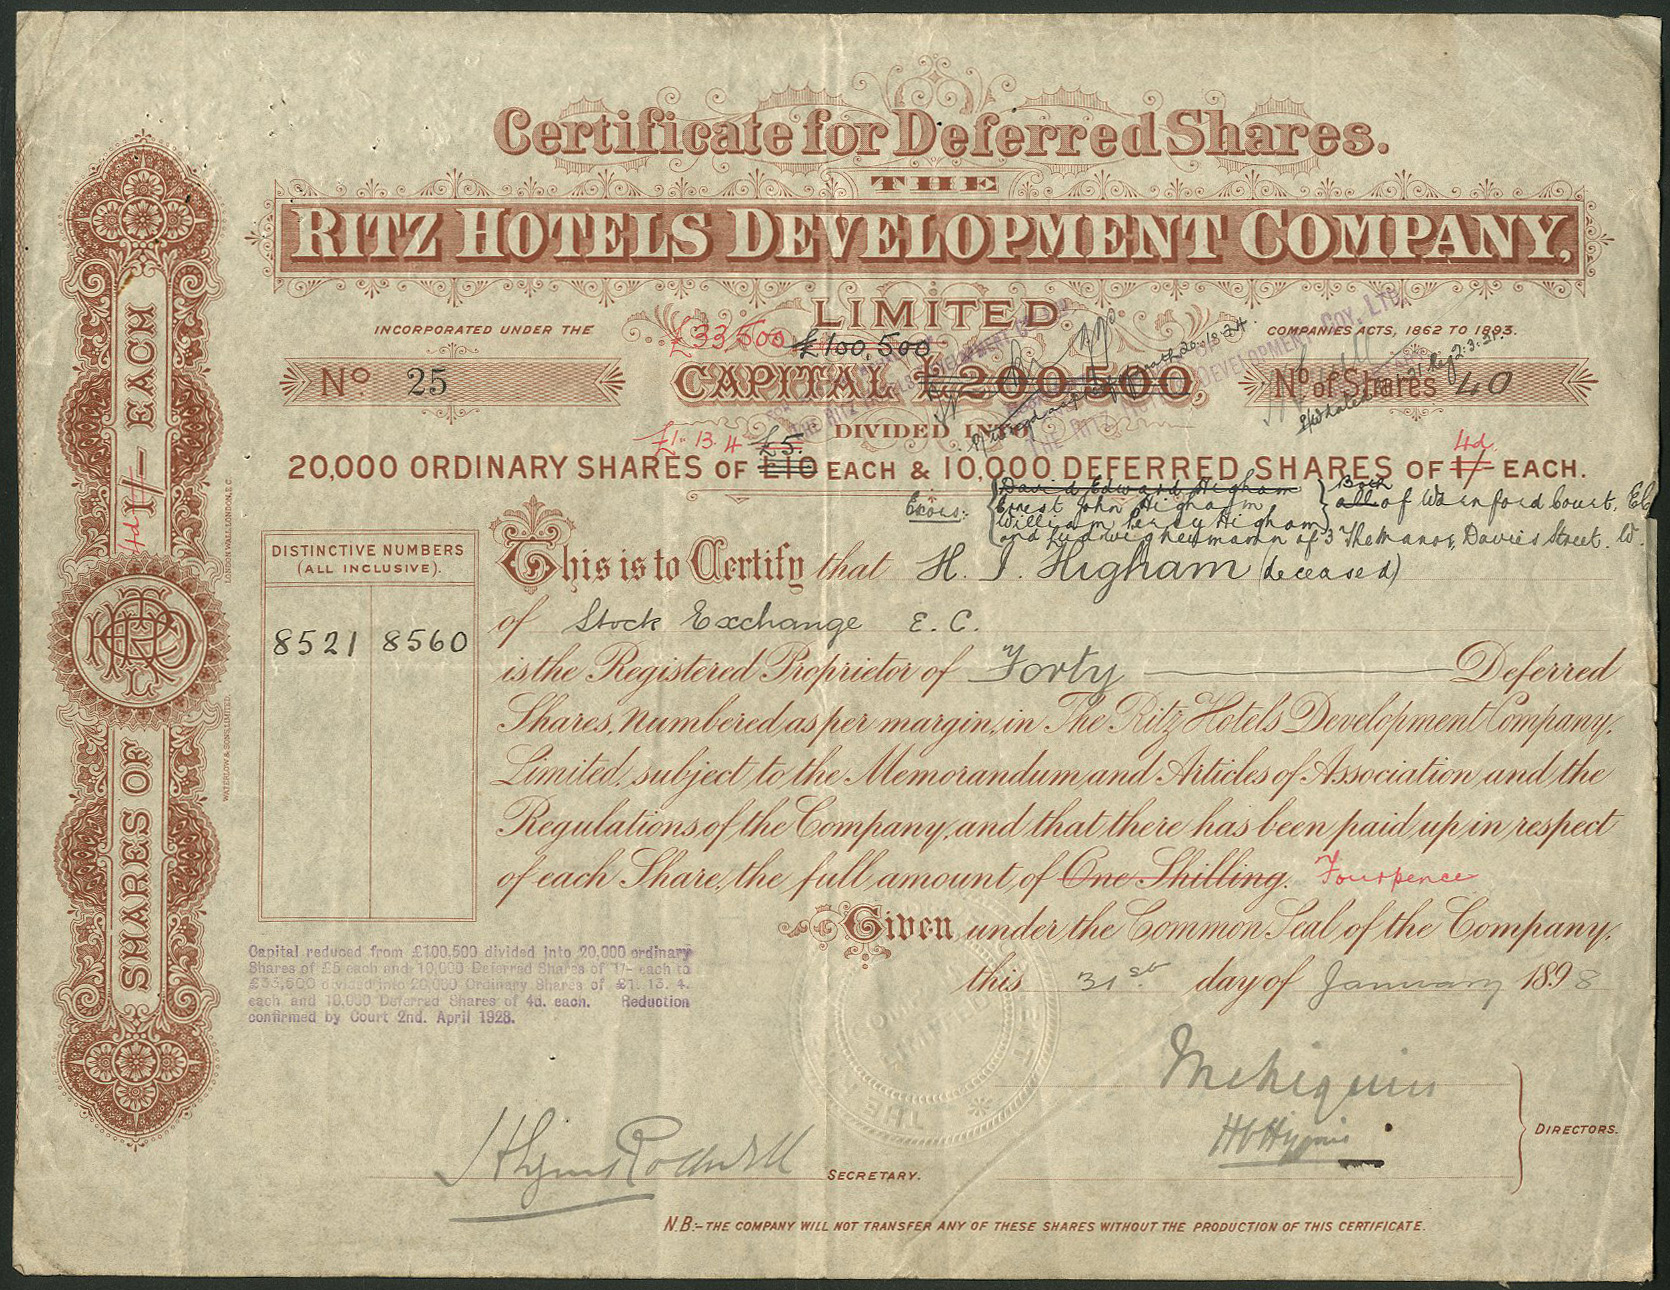 Certificate for Deferred Shares.
THE
RITZ HOTELS DEVELOPMENT COMPANY,
LIMITED
INCORPORATED UNDER THE
COMPANIES ACTS, 1862 TO 1893.
£33,500 £100,500
No 25
CAPITAL £200,500,
No of Shares 40
DIVIDED INTO
£1. 13. 4 £5. 4d
20,000 ORDINARY SHARES OF £10 EACH & 10,000 DEFERRED SHARES OF 1/- EACH.
David Edward Higham Both
Exors: Ernest John Higham all of Warnford Court, EC
William Percy Higham
and Ludwig Neumann of 3 The Manor, Davies Street. W.
This is to Certify that H. J. Higham (deceased)
of Stock Exchange E. C.
is the Registered Proprietor of Forty Deferred
Shares, Numbered as per margin, in The Ritz Hotels Development Company,
Limited, subject to the Memorandum and Articles of Association and the
Regulations of the Company, and that there has been paid up, in respect
of each Share, the full amount of One Shilling. Fourpence
Given under the Common Seal of the Company,
this 31st day of January 1898
DIRECTORS.
SECRETARY.
N.B:- THE COMPANY WILL NOT TRANSFER ANY OF THESE SHARES WITHOUT THE PRODUCTION OF THIS CERTIFICATE.
DISTINCTIVE NUMBERS
(ALL INCLUSIVE).
8521 8560
Capital reduced from £100,500 divided into 20,000 ordinary
Shares of £5 each and 10,000 Deferred Shares of 1/- each to
£33,500 divided into 20,000 Ordinary Shares of £1. 13. 4.
each and 10,000 Deferred Shares of 4d. each. Reduction
confirmed by Court 2nd. April 1928.
SHARES OF 4d 1/- EACH
WATERLOW & SONS LIMITED, LONDON WALL, LONDON, E.C.